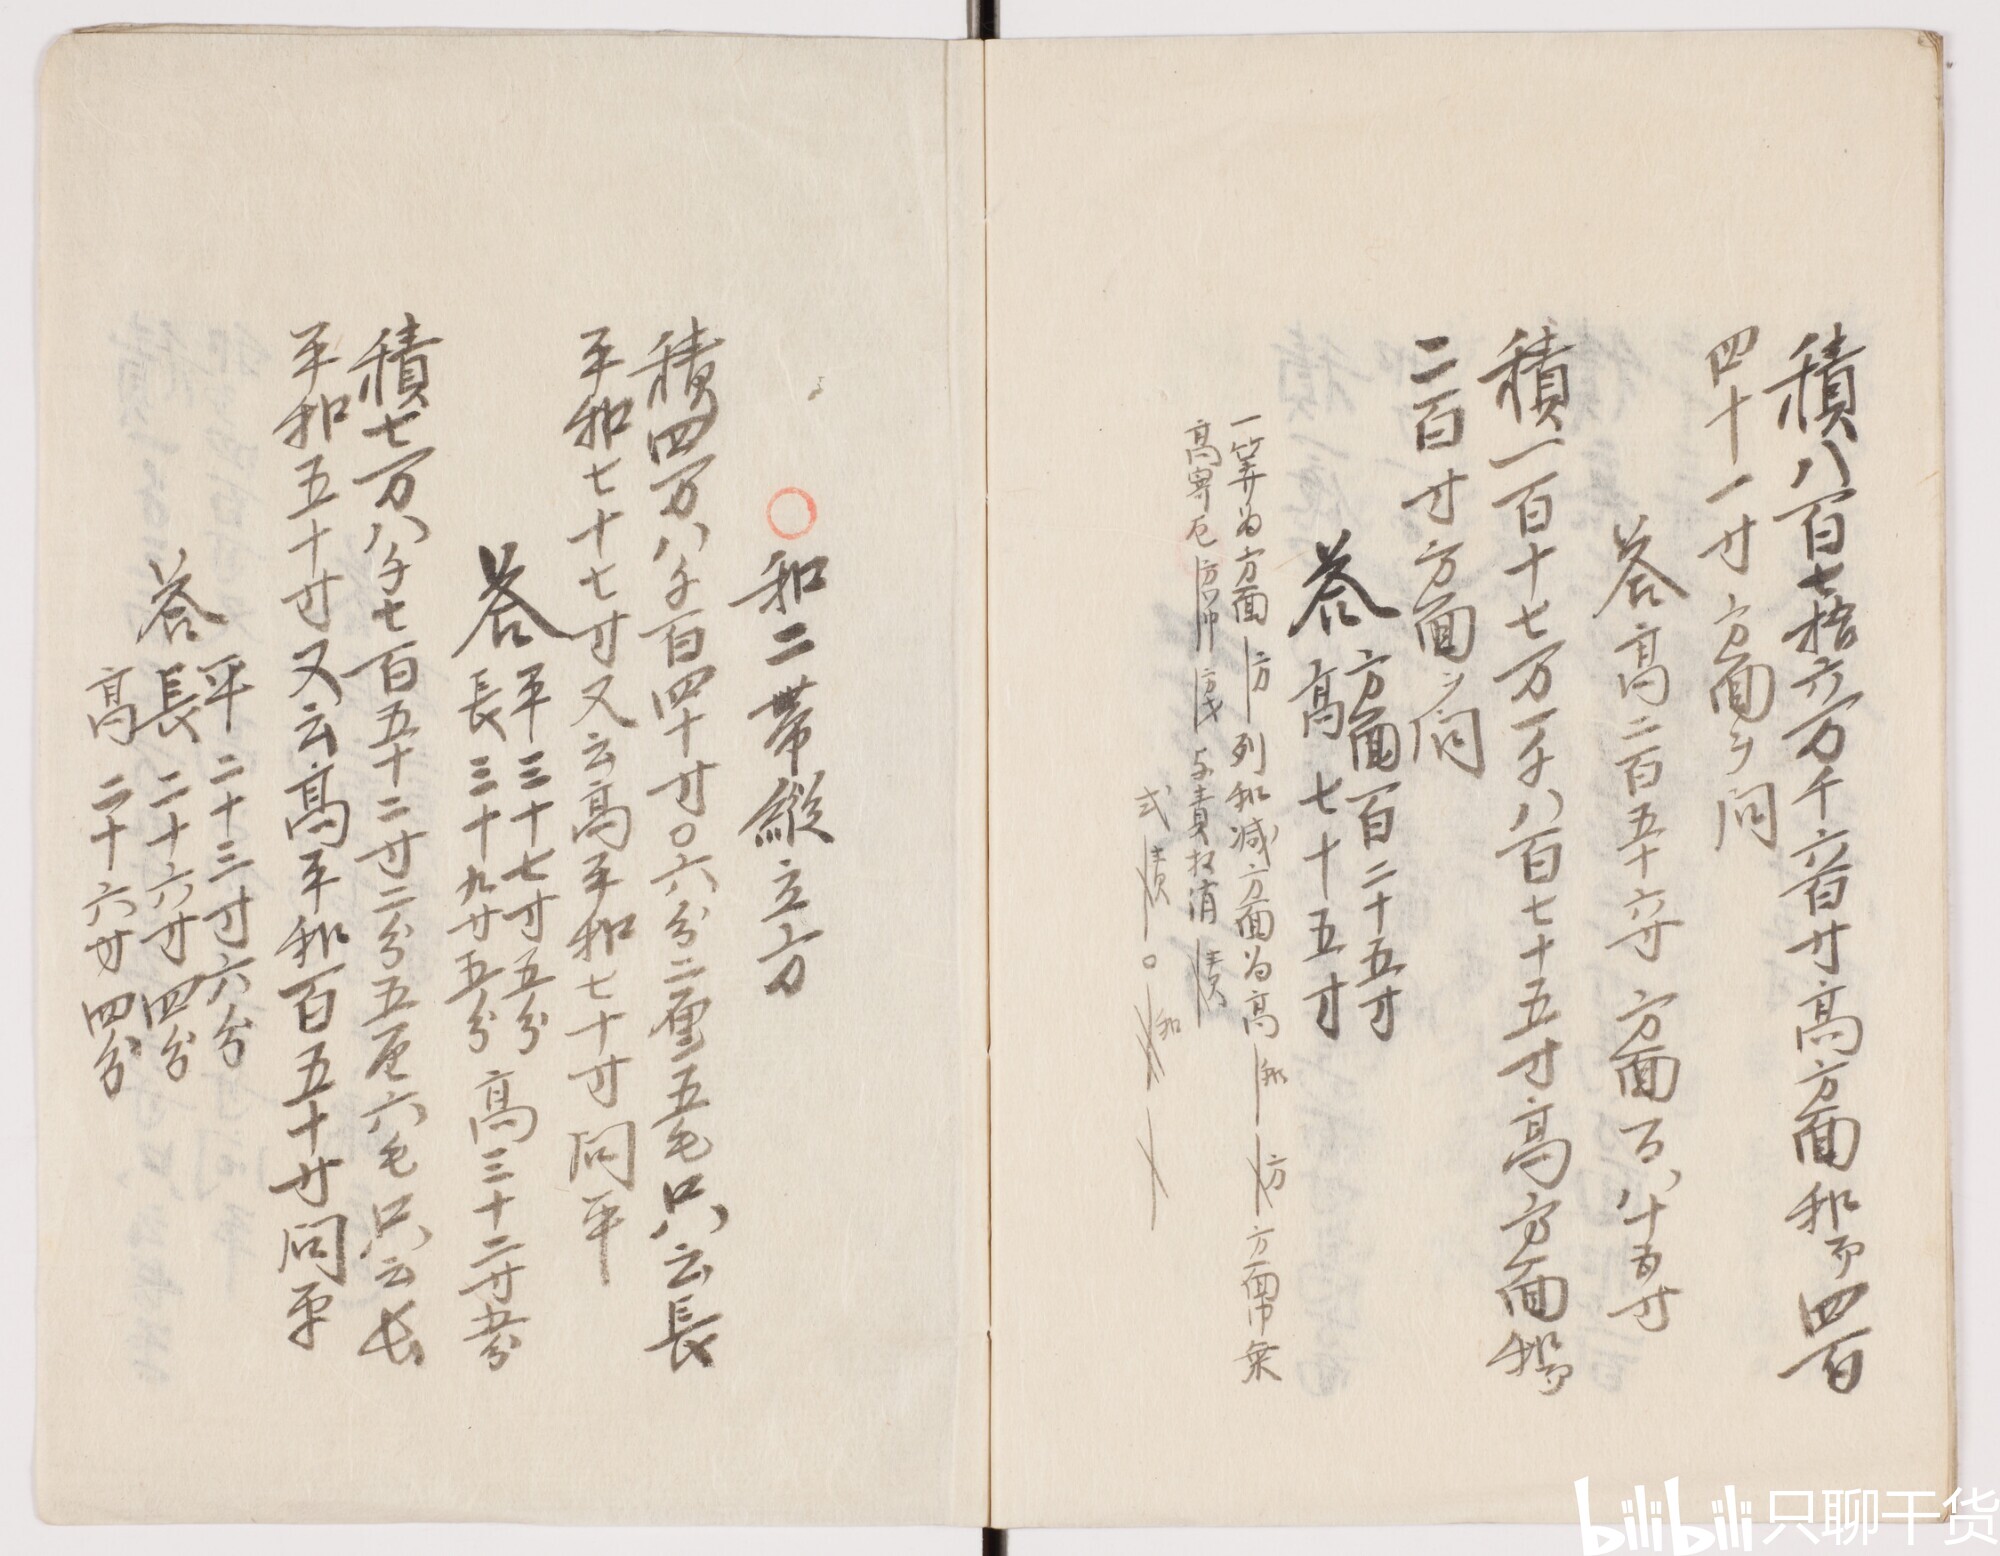 積八百七拾六万千六百寸高方面和而四百
四十一寸方面ヲ問
答高二百五十六寸 方面百八十五寸
積一百十七万一千八百七十五寸高方面和而
二百寸方面ヲ問
答 方面百二十五寸
高 七十五寸
一筭為方面 方 列和减方面為高 和 方 方面巾乗
高寄左 与責相消 積
式 責 〇 和
和二帯縦立方
積四万八千百四十寸〇六分二厘五毛只云長
平和七十七寸又云高平和七十寸問平
答 平三十七寸五分
長三十九寸五分 高三十二寸五分
積七万八千七百五十二寸二分五厘六毛只云長
平和五十寸又云高平和百五十寸問平
平 二十三寸六分
答 長 二十六寸四分
高 二十六寸四分
bilibili 只聊干货